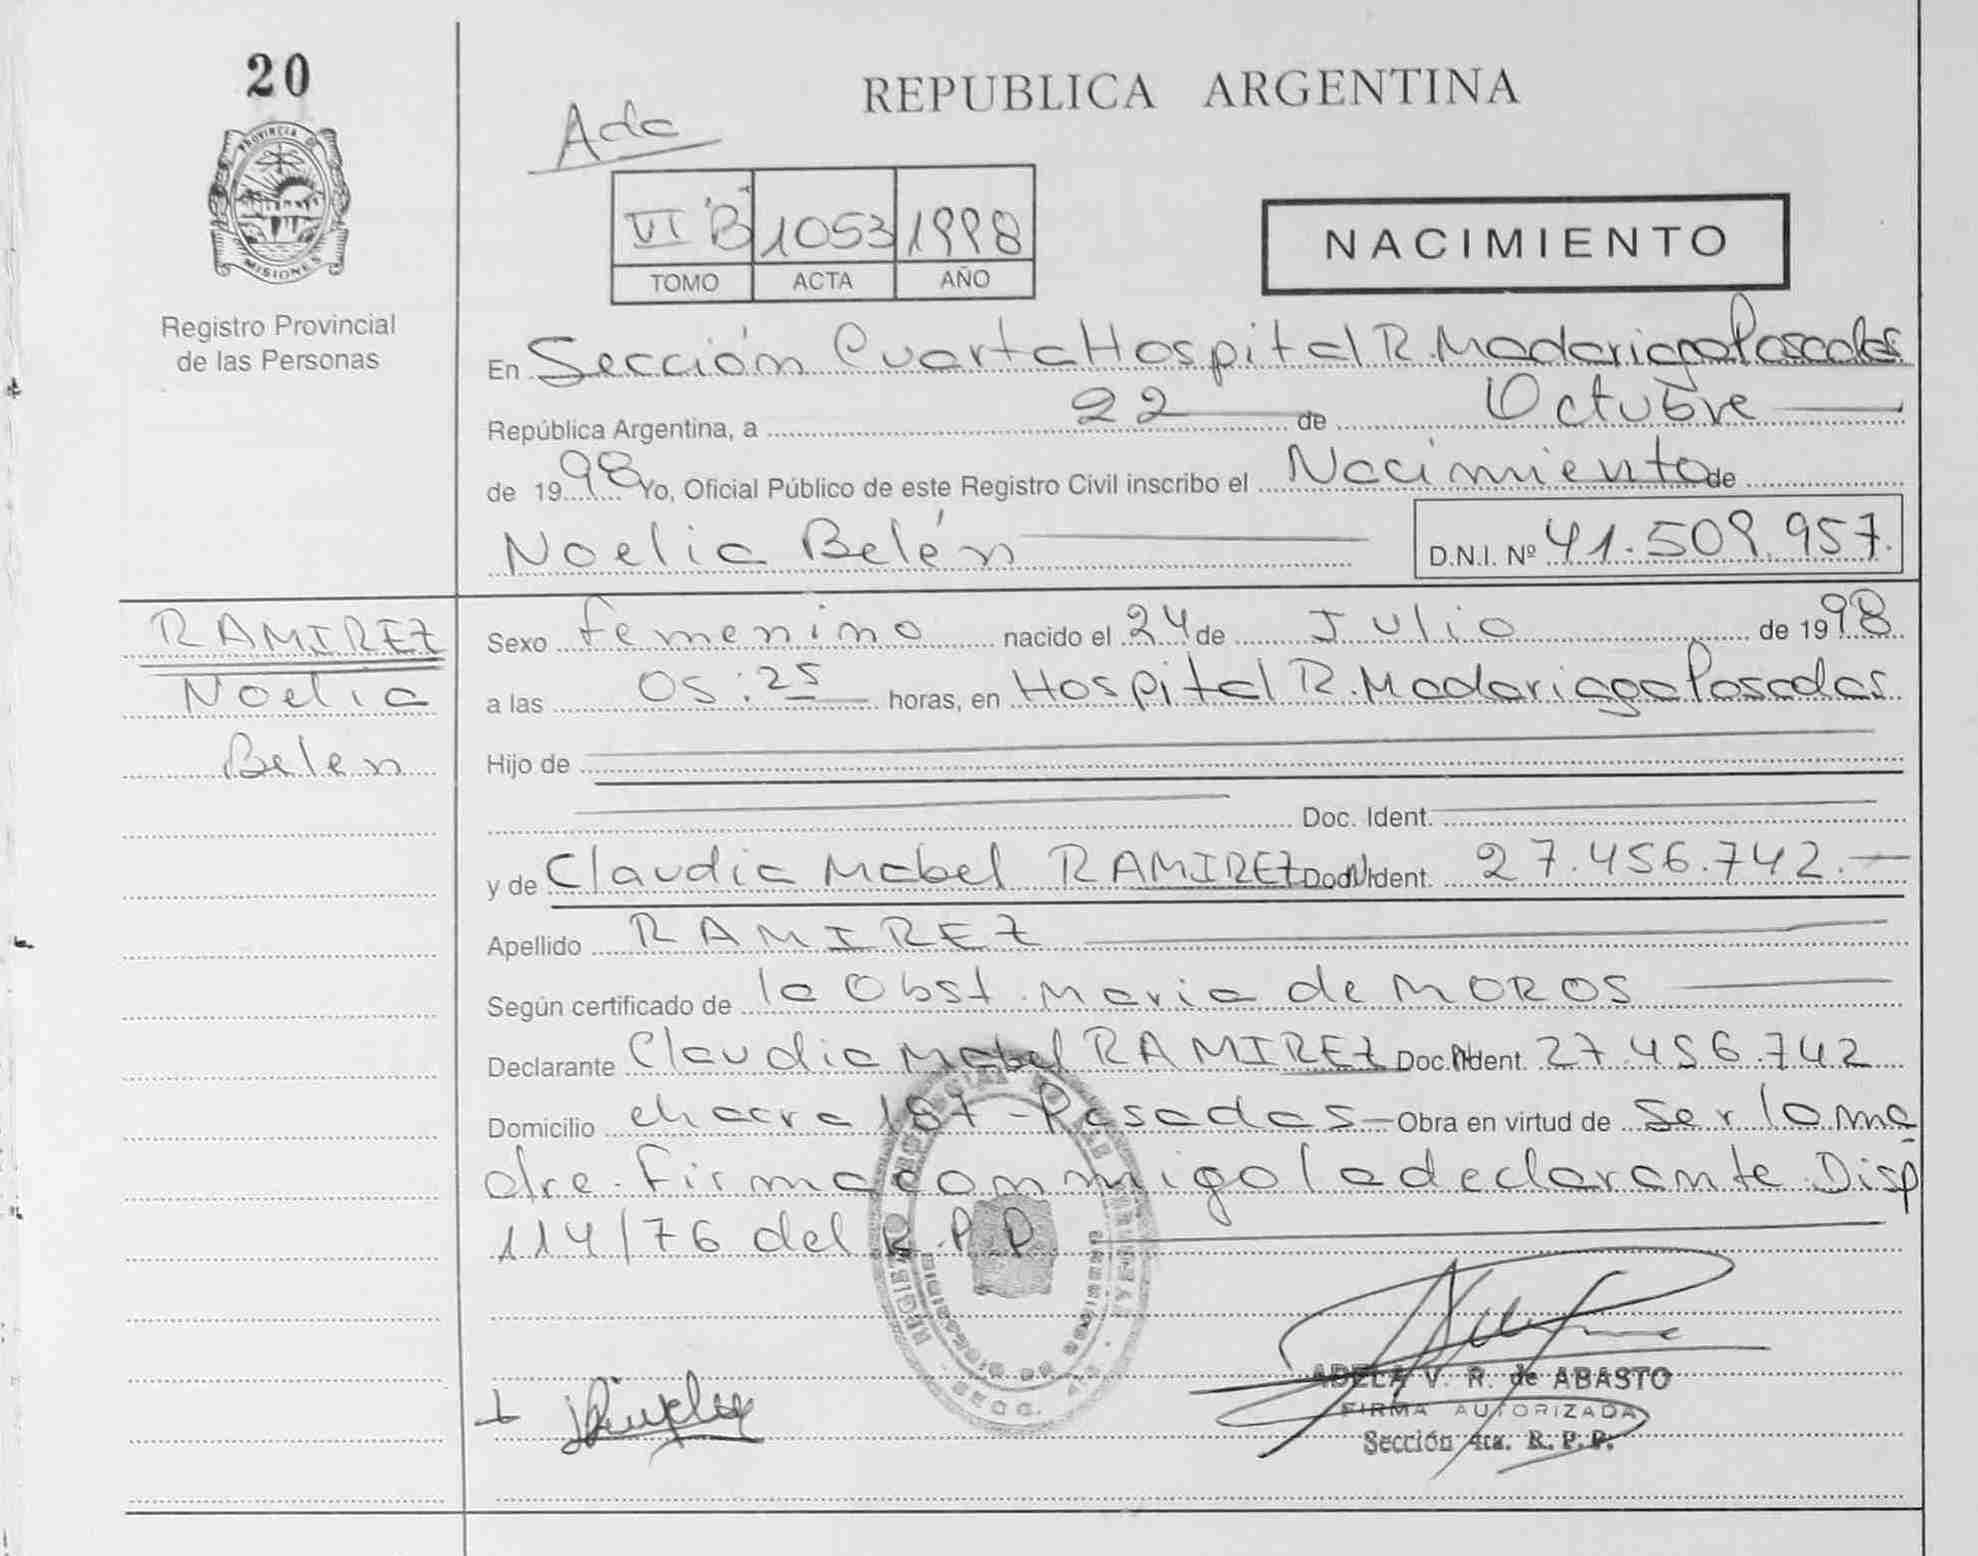 20
PROVINCIA DE
MISIONES
Registro Provincial
de las Personas
REPUBLICA ARGENTINA
VI "B" 1053 1998
TOMO ACTA AÑO
NACIMIENTO
En Sección Cuarta Hospital R. Madariaga Posadas
República Argentina, a 22 de Octubre
de 1998 Yo, Oficial Público de este Registro Civil inscribo el Nacimiento de
Noelia Belén D.N.I. Nº 41.509.957.
RAMIREZ
Noelia
Belen
Sexo femenino nacido el 24 de Julio de 1998
a las 05:25 horas, en Hospital R. Madariaga Posadas
Hijo de
Doc. Ident.
y de Claudia Mabel RAMIREZ Doc. Ident. 27.456.742.
Apellido RAMIREZ
Según certificado de la Obst. Maria de MOROS
Declarante Claudia Mabel RAMIREZ Doc. Ident. 27.456.742
Domicilio chacra 187 - Posadas - Obra en virtud de ser la ma
dre. Firma conmigo la declarante. Disp
114/76 del R.P.P
ADELA V. R. de ABASTO
FIRMA AUTORIZADA
Sección 4ta. R. P. P.